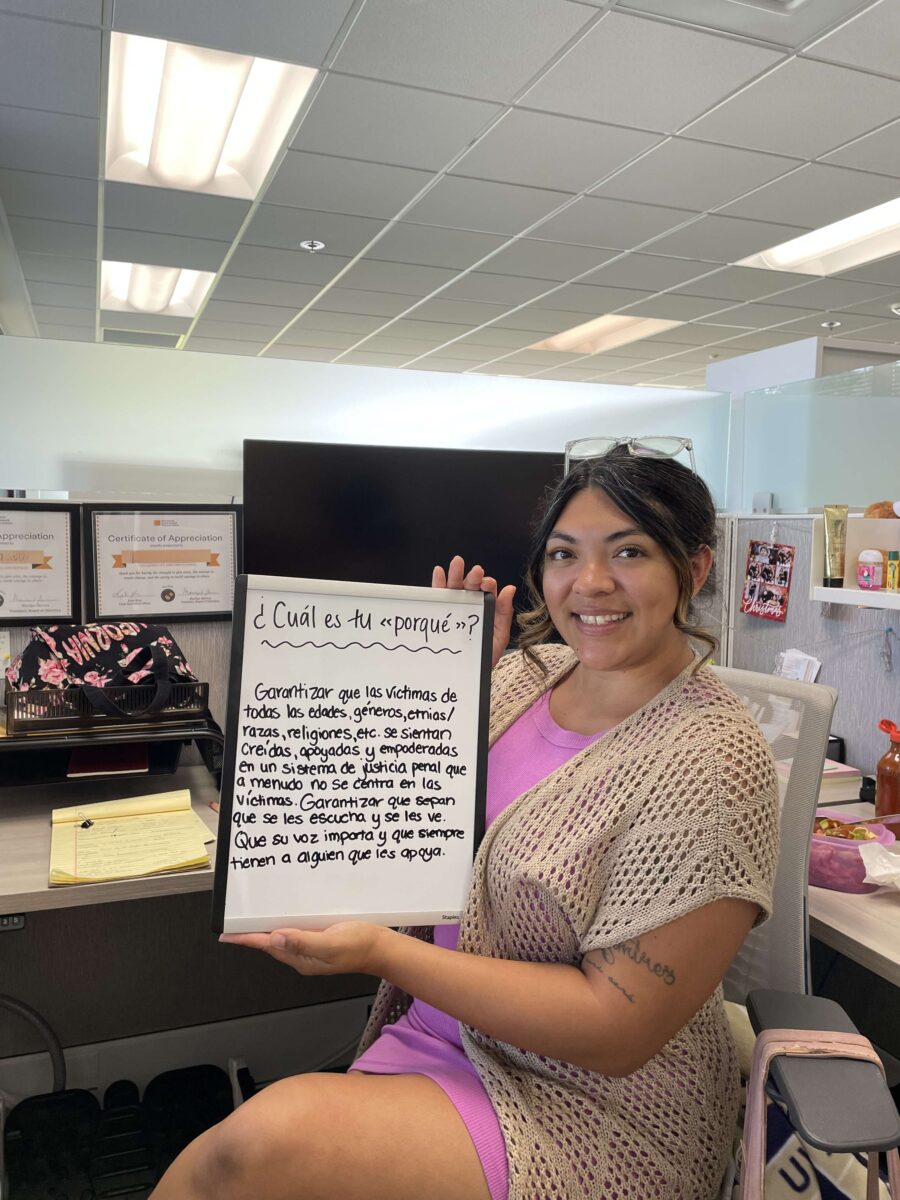 ¿Cuál es tu «porqué»?
Garantizar que las víctimas de
todas las edades, géneros, etnias/
razas, religiones, etc. se sientan
creídas, apoyadas y empoderadas
en un sistema de justicia penal que
a menudo no se centra en las
víctimas. Garantizar que sepan
que se les escucha y se les ve.
Que su voz importa y que siempre
tienen a alguien que les apoya.
Staples
Appreciation
Certificate of Appreciation
Christmas
U